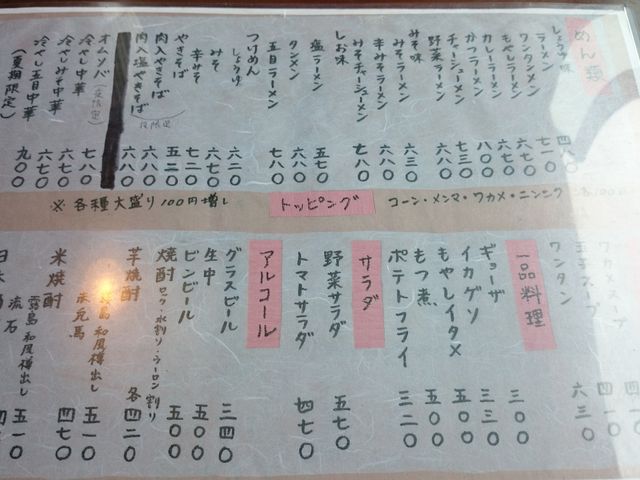 めん類
しょうゆ味
ラーメン 四八〇
ワンタンメン 七一〇
もやしラーメン 六七〇
カレーラーメン 六七〇
かつラーメン 八〇〇
チャーシューメン 七三〇
野菜ラーメン 六八〇
みそ味
みそラーメン 六三〇
辛みそラーメン 六八〇
みそチャーシューメン 七八〇
しお味
塩ラーメン 五七〇
タンメン 六八〇
五目ラーメン 七一〇
つけめん
しょうゆ 六二〇
みそ 六七〇
辛みそ 七二〇
やきそば 五二〇
肉入やきそば 六八〇
肉入塩やきそば 六八〇
(夜限定)
オムソバ(夜限定) 七八〇
冷やし中華 六七〇
冷やしみそ中華 六七〇
冷やし五目中華 九〇〇
(夏期限定)
※各種大盛り100円増し
トッピング
コーン・メンマ・ワカメ・ニンニク
ワンタン 六三〇
一品料理
ギョーザ 三〇〇
イカゲソ 三三〇
もやしイタメ 五〇〇
もつ煮 五〇〇
ポテトフライ 三二〇
サラダ
野菜サラダ 五七〇
トマトサラダ 四七〇
アルコール
グラスビール 三四〇
生中 五〇〇
ビンビール 五〇〇
焼酎 ロック・水割り・ウーロン割り
芋焼酎 各四二〇
霧島 和風樽出し 五一〇
米焼酎 四七〇
霧島 和風樽出し
流石 五一〇